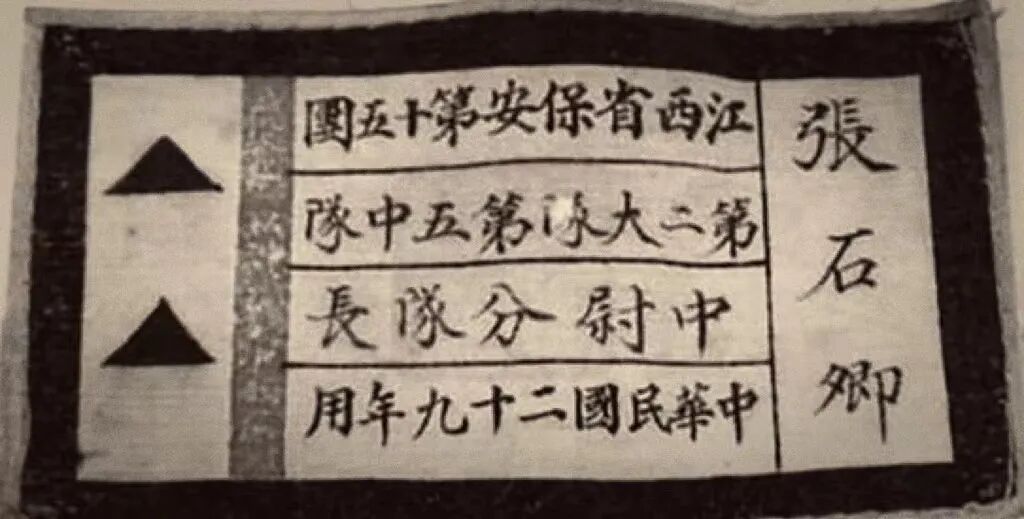 張石卿
江西省保安第十五團
第二大隊第五中隊
中尉分隊長
中華民國二十九年用